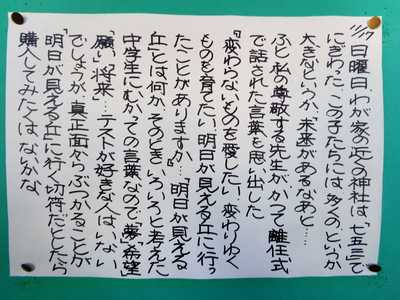 11/17
日曜日、わが家の応の神社は「七五三」で
にぎわった、この子たちには、多くの、というか
大きなというか、「未来」があるなあと…
ふと、私の尊敬する先生がかつて離任式
で話された言葉を思い出した
『変わらないものを愛したい、変わりゆく
ものを育てたい、明日が見える丘に行っ
たことがありますか…』「明日が見える
丘」とは何か、そのときいろいろと考えた
中学生にむかっての言葉なので、「夢」「希望」
「願い」「将来」…テストが好きな人は、いない
でしょうが、真正面からぶつかることが
「明日が見える丘」に行く切符だとしたら
購入してみたくはないかな、